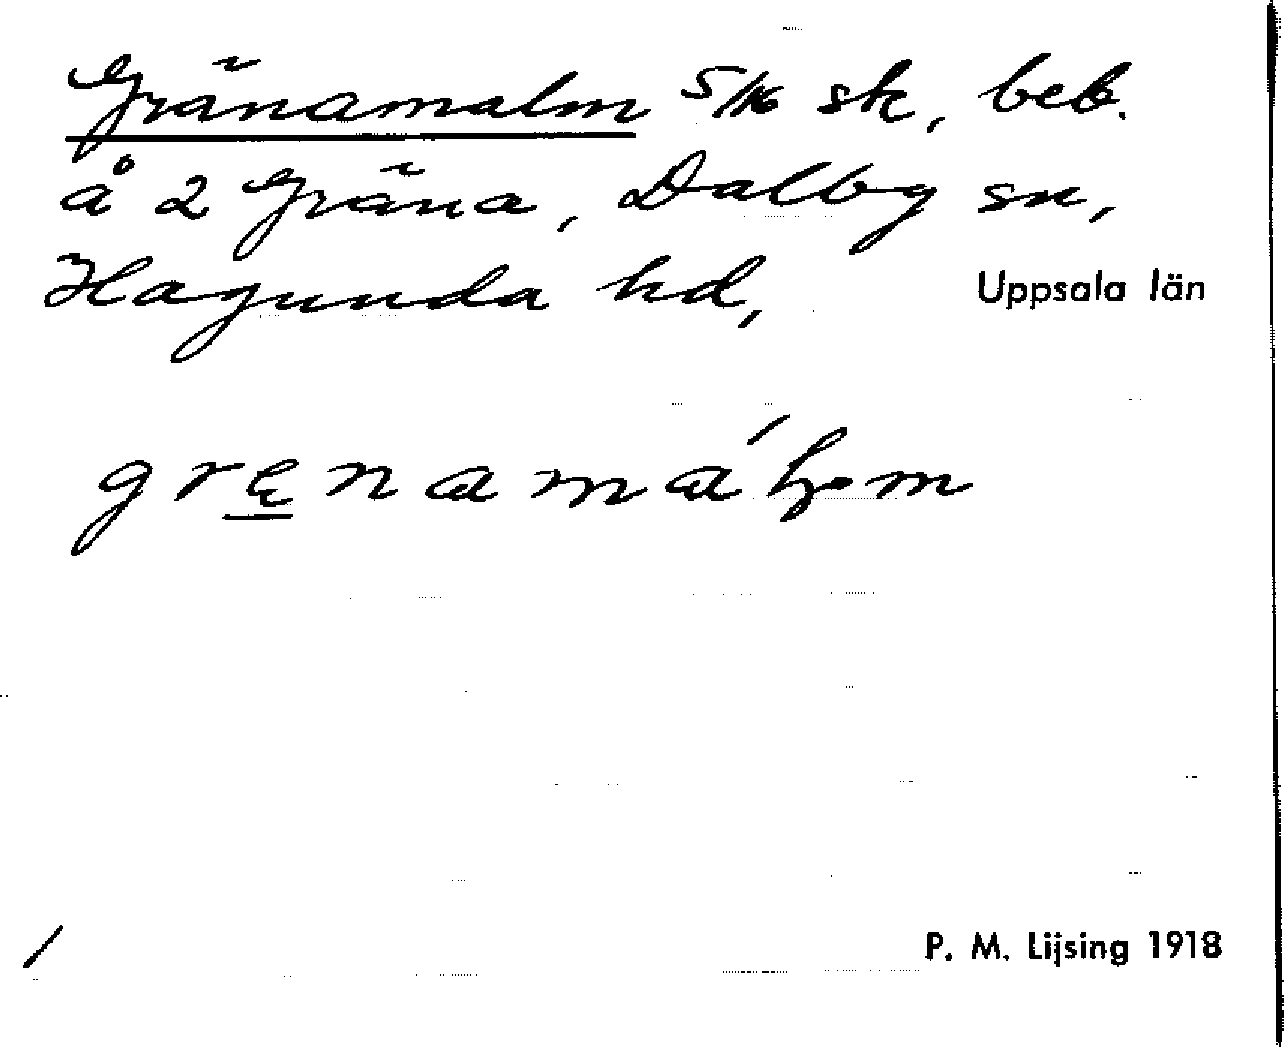 Gränamalm 5/16 sk, beb.
å 2 Gräna, Dalby sn,
Hagunda hd, Uppsala län
/
P. M. Lijsing 1918